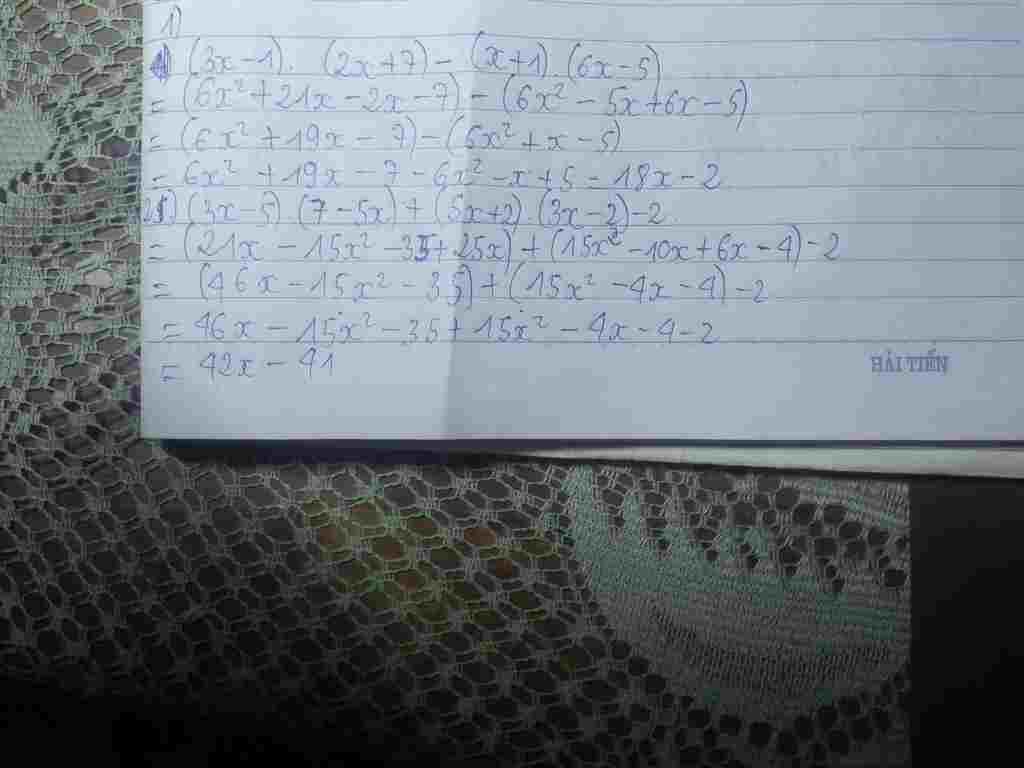 1)
(3x-1). (2x+7) - (x+1).(6x-5)
= (6x² + 21x - 2x - 7) - (6x² - 5x + 6x - 5)
= (6x² + 19x - 7) - (6x² + x - 5)
= 6x² + 19x - 7 - 6x² - x + 5 = 18x - 2
(3x-5).(7-5x) + (5x+2).(3x-2) - 2
= (21x - 15x² - 35 + 25x) + (15x² - 10x + 6x - 4) - 2
= (46x - 15x² - 35) + (15x² - 4x - 4) - 2
= 46x - 15x² - 35 + 15x² - 4x - 4 - 2
= 42x - 41
HẢI TIẾN